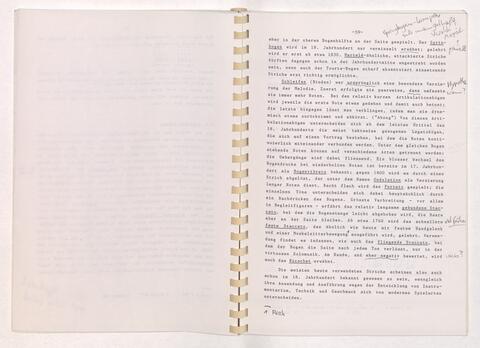 -59-
eher in der oberen Bogenhälfte an der Saite gespielt. Der
Bogen wird im 18. Jahrhundert nur vereinzelt erwähnt; gelehrt
wird er erst ab etwa 1830. Martelé-ähnliche, attackierte Striche
dürften dagegen schon in der Jahrhundertmitte angestrebt worden
sein, wenn auch der Tourte-Bogen scharf akzentuiert einsetzende
Striche erst richtig ermöglichte.
Schleifen (Binden) war ursprünglich eine besondere Verzie-
rung der Melodie. Zuerst erfolgte sie paarweise, dann umfasste
sie immer mehr Noten. Bei den relativ kurzen Artikulationsbögen
wird jeweils die erste Note etwas gedehnt und damit auch betont;
die letzte hingegen lässt man verklingen, indem man sie dyna-
misch etwas zurücknimmt und abkürzt. Von diesen Arti-
kulationsbögen unterscheiden sich ab dem letzten Drittel des
18. Jahrhunderts die meist taktweise gezogenen Legatobögen,
die sich auf einen Vortrag beziehen, bei dem die Noten konti-
nuierlich miteinander verbunden werden. Unter dem gleichen Bogen
stehende Noten können auf verschiedene Arten getrennt werden;
die Uebergänge sind dabei fliessend. Ein blosser Wechsel des
Bogendrucks bei wiederholten Noten ist bereits im 17. Jahrhun-
dert als bekannt; gegen 1800 wird es durch einen
Strich abgelöst, der unter dem Namen Ondulation als Verzierung
langer Noten dient. Recht flach wird das Portato gespielt; die
einzelnen Töne unterscheiden sich dabei hauptsächlich durch
ein Nachdrücken des Bogens. Grösste Verbreitung - vor allem
in Begleitfiguren - erfährt das relativ langsame gebundene Stac-
cato, bei dem die Bogenstange leicht abgehoben wird, die Haare
aber an der Saite bleiben. Ab etwa 1750 wird das schnellere
feste Staccato, das ähnlich wie heute mit festem Handgelenk
und einer Muskelzitterbewegung ausgeführt wird, gelehrt. Verwen-
dung findet es indessen, wie auch das fliegende Staccato, bei
dem der Bogen die Saite nach jedem Ton verlässt, nur in der
virtuosen Solomusik. Am Rande, und eher negativ bewertet, wird
auch das Ricochet erwähnt.
Die meisten heute verwendeten Striche scheinen also auch
schon im 18. Jahrhundert bekannt gewesen zu sein, wenngleich
ihre Anwendung und Ausführung wegen der Entwicklung von Instru-
mentarium, Technik und Geschmack sich von modernen Spielarten
unterscheiden.